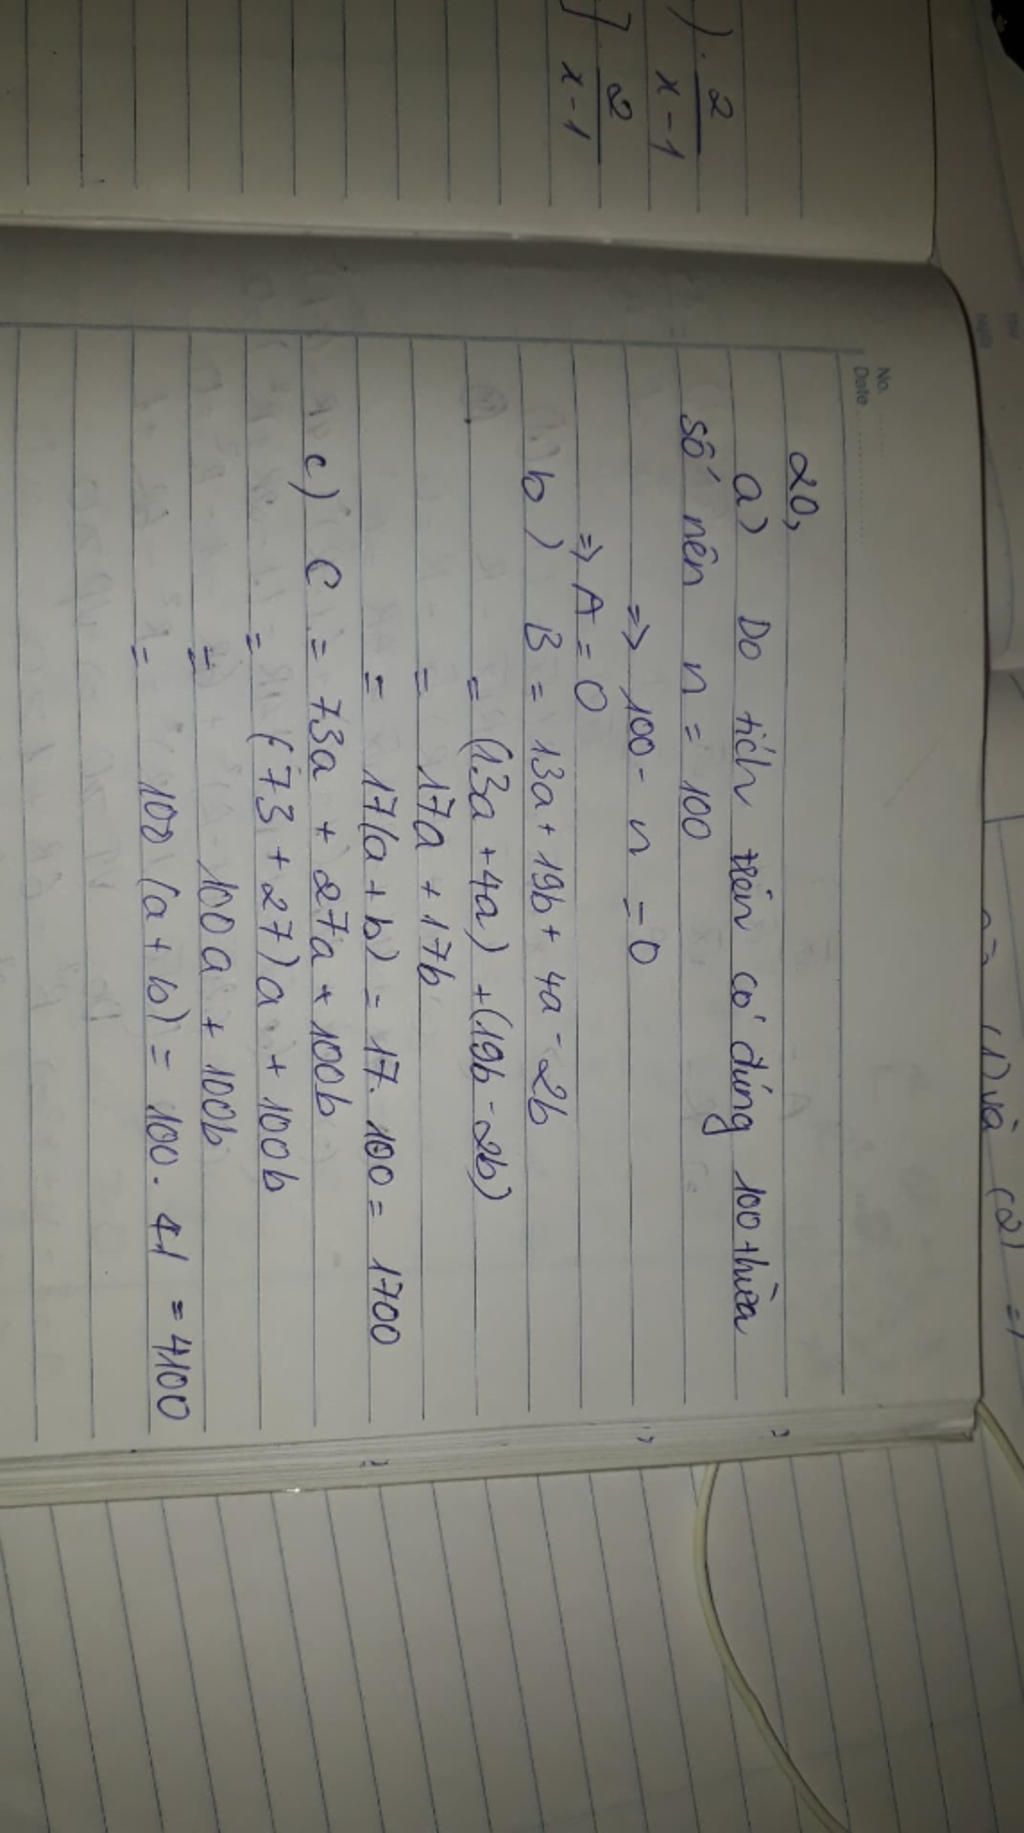 ) . 2
x - 1
] 2
x - 1
No.
Date
20,
a) Do tích trên có đúng 100 thừa
số nên n = 100
=> 100 - n = 0
=> A = 0
b) B = 13a + 19b + 4a - 2b
= (13a + 4a) + (19b - 2b)
= 17a + 17b
= 17(a + b) = 17. 100 = 1700
c) C = 73a + 27a + 100b
= (73 + 27)a + 100b
= 100a + 100b
= 100 (a + b) = 100. 41 = 4100
(1) và (2) =>